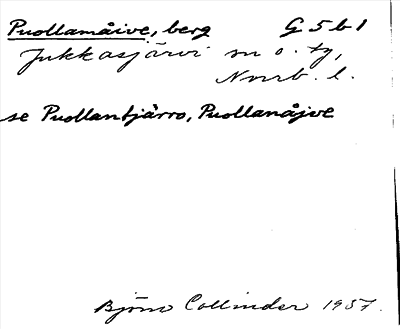 Puollamåive, berg G 5 b 1
Jukkasjärvi sn o. tg,
Norrb. l.
se Puollantjårro, Puollanåjve
Björn Collinder 1957.